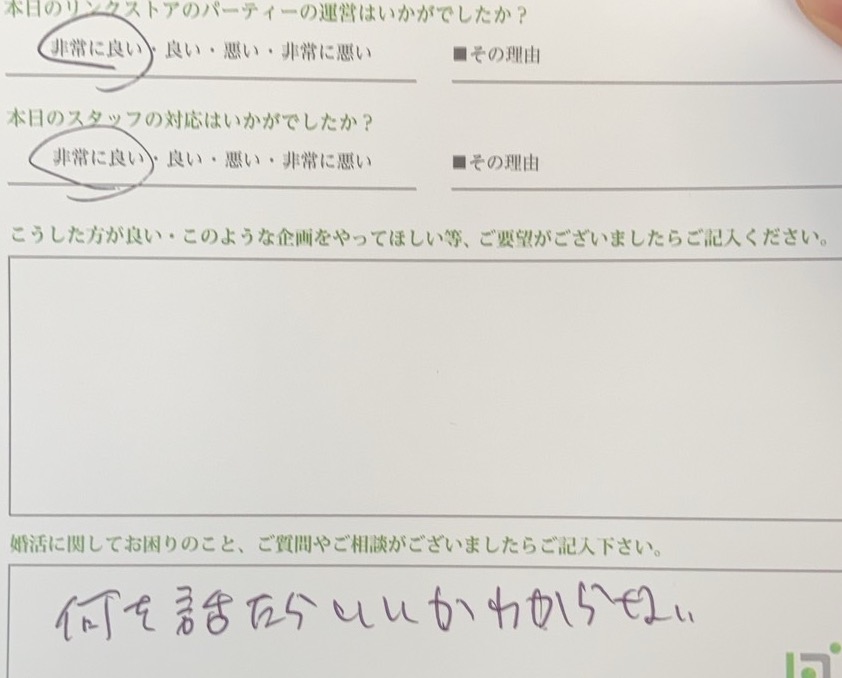 本日のリンクストアのパーティーの運営はいかがでしたか？
非常に良い・良い・悪い・非常に悪い ■その理由
本日のスタッフの対応はいかがでしたか？
非常に良い・良い・悪い・非常に悪い ■その理由
こうした方が良い・このような企画をやってほしい等、ご要望がございましたらご記入ください。
婚活に関してお困りのこと、ご質問やご相談がございましたらご記入下さい。
何を話たらいいかわからない